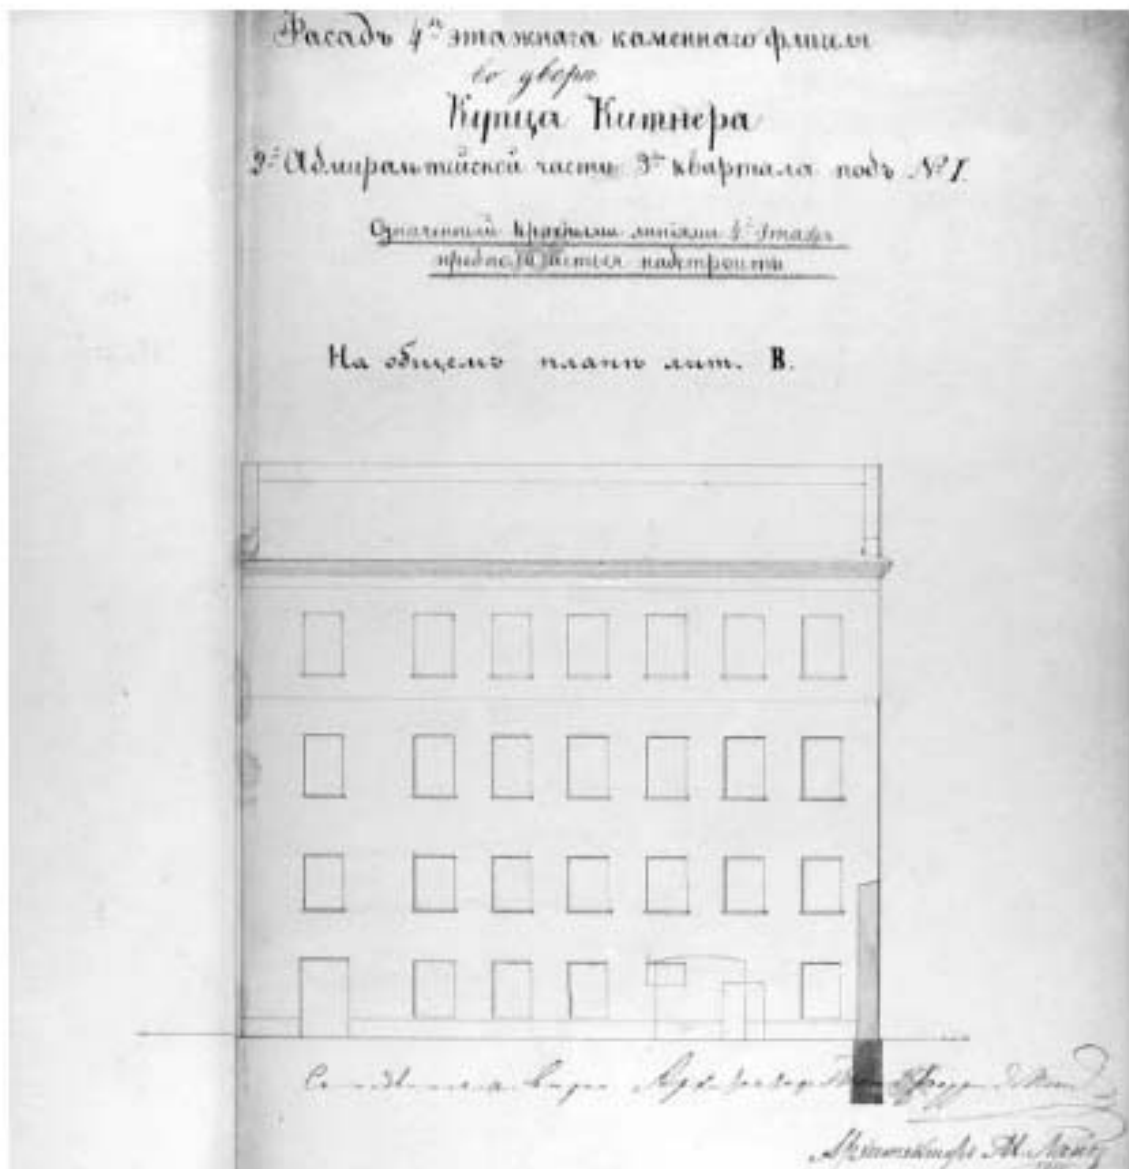 Фасадъ 4хъ этажнаго каменнаго флигеля
во дворѣ
Купца Китнера
2й Адмиралтейской части 3го квартала подъ № 1.
Означенный красными линіями 4й этажъ
предполагается надстроить
На общемъ планѣ лит. В.
Архитекторъ